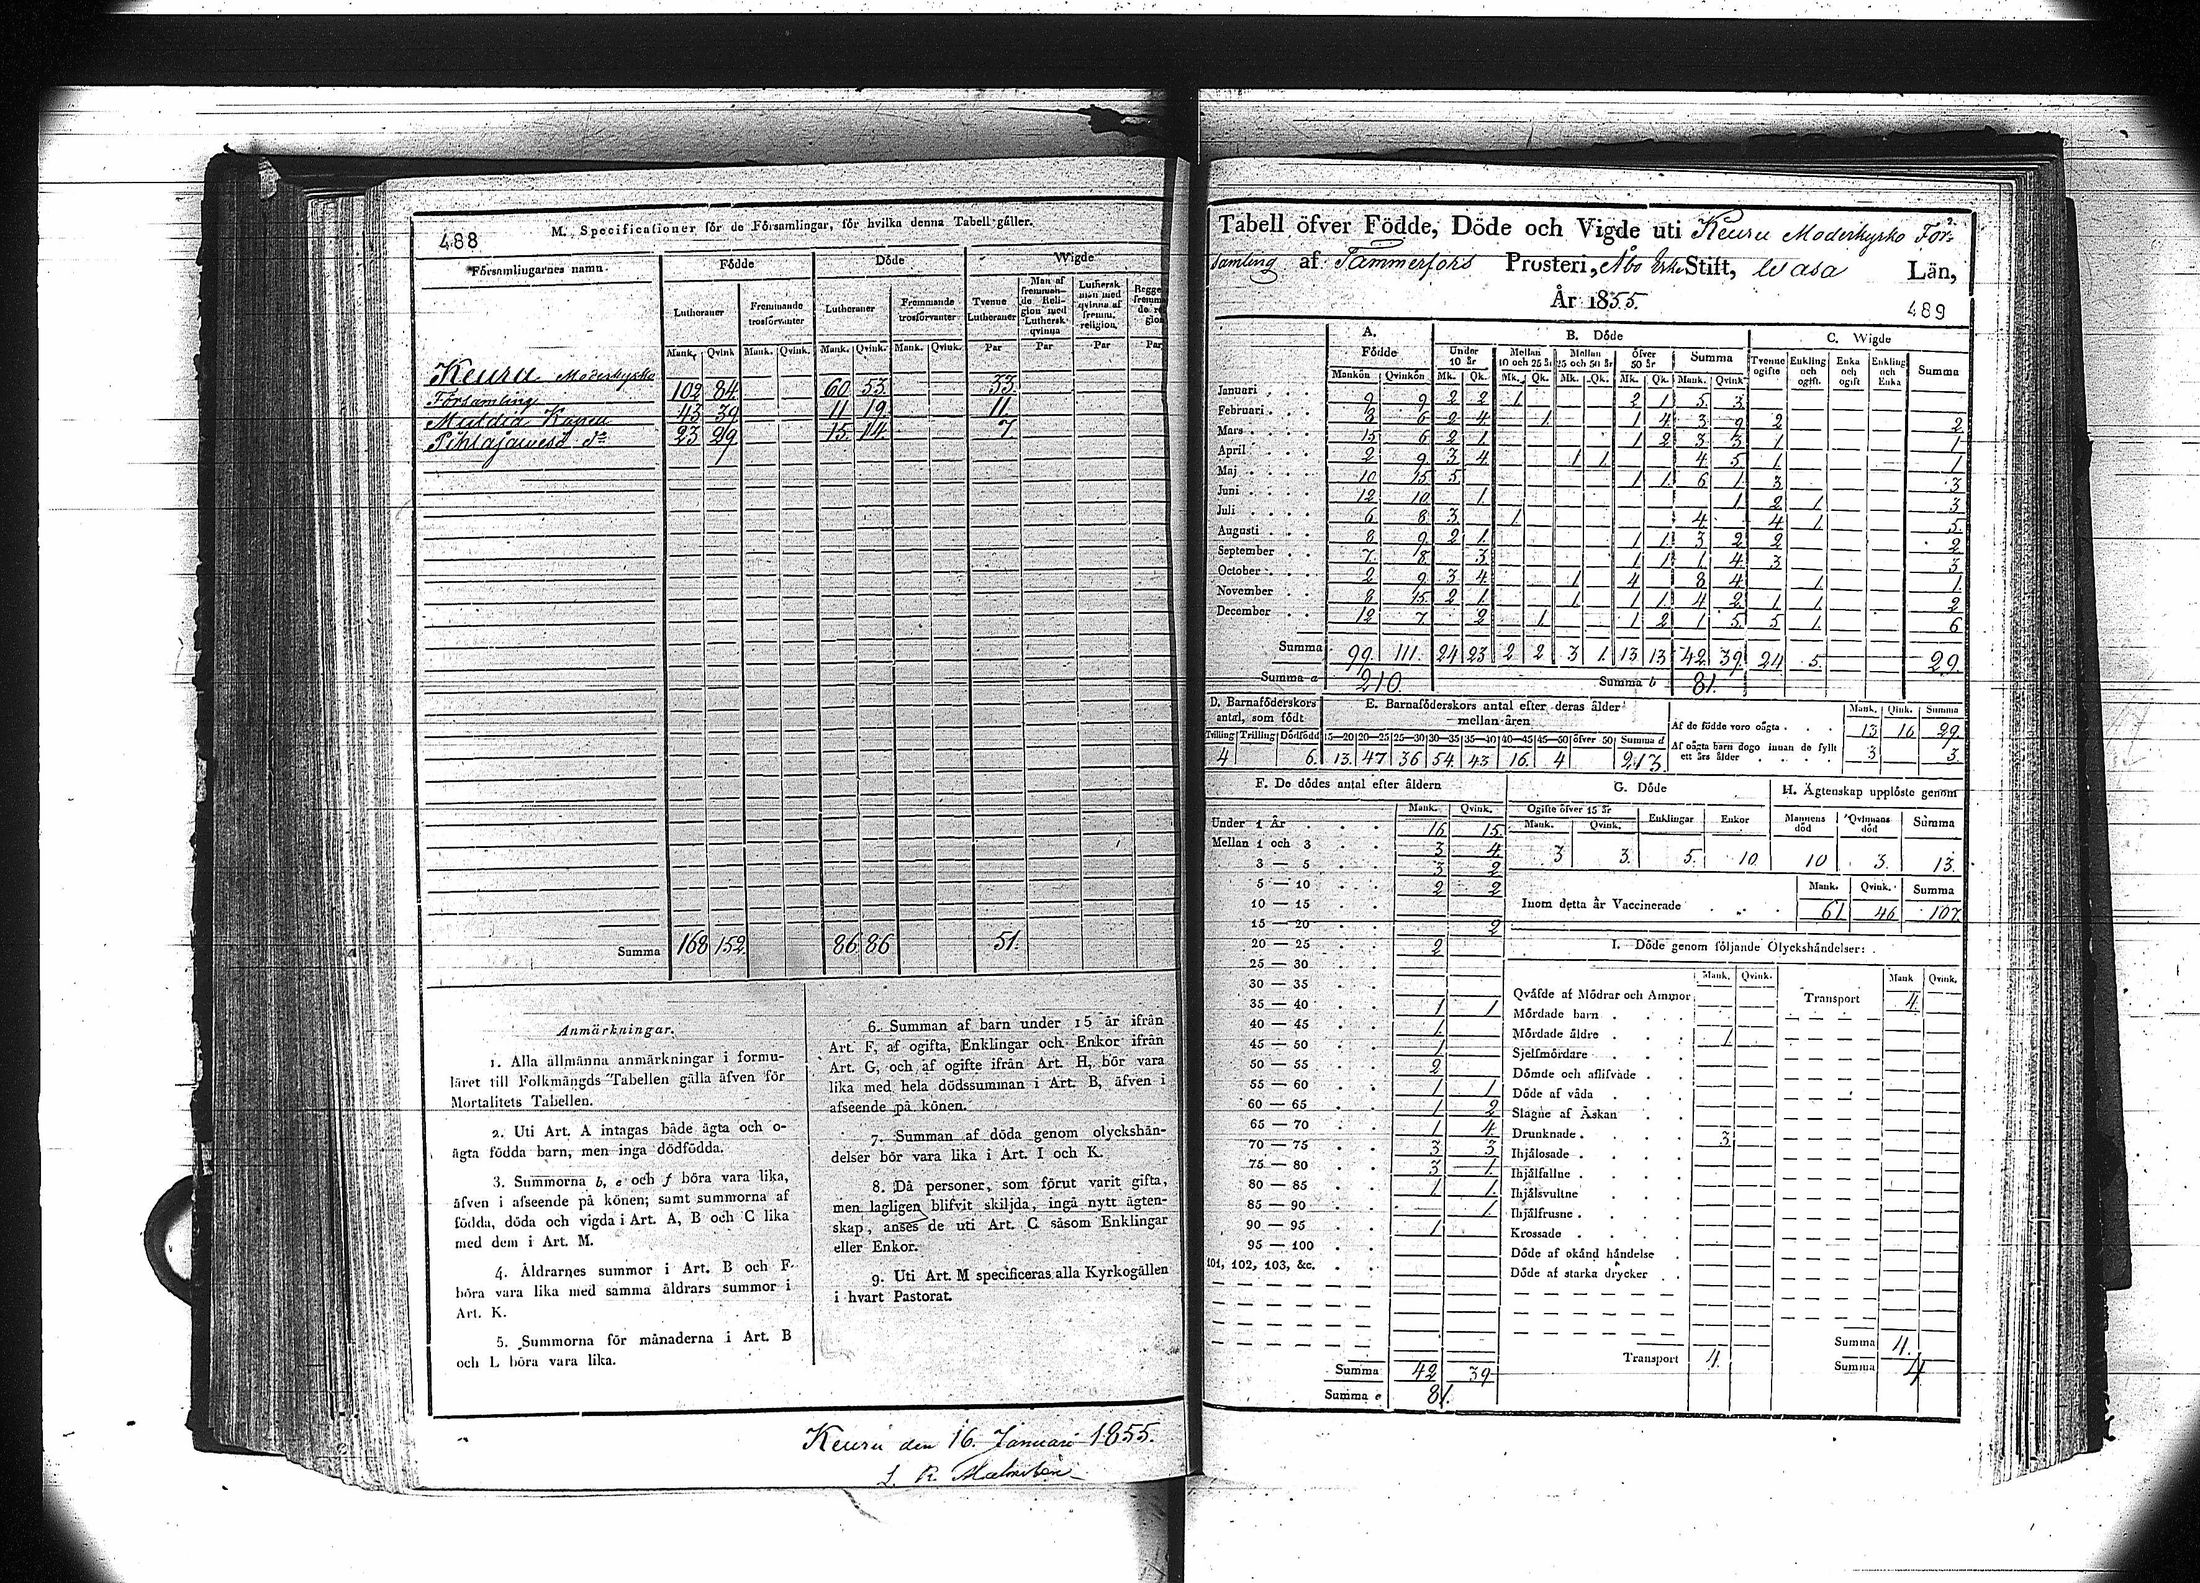 488
M. Specificationer för de Församlingar, för hvilka denna Tabell gäller.
Församlingarnes namn.
Födde
Döde
Wigde
Lutheraner
Fremmande trosförvanter
Lutheraner
Fremmande trosförvanter
Tvenne Lutheraner
Man af fremmande Religion med Luthersk qvinna
Luthersk man med qvinna af fremm. religion.
Mank. Qvink Mank. Qvink. Mank. Qvink. Mank. Qvink. Par Par Par Par
Keuru Moderkyrko
Församling 102 84 60 53 33
Multia Kapell 43 39 11 19 11.
Pihlajavesi d:o 23 29 15 14 7
Summa 168 152 86 86 51.
Anmärkningar.
1. Alla allmänna anmärkningar i formu-
läret till Folkmängds Tabellen gälla äfven för
Mortalitets Tabellen.
2. Uti Art. A intagas både ägta och o-
ägta födda barn, men inga dödfödda.
3. Summorna b, e och f böra vara lika,
äfven i afseende på könen; samt summorna af
födda, döda och vigda i Art. A, B och C lika
med dem i Art. M.
4. Åldrarnes summor i Art. B och F
böra vara lika med samma åldrars summor i
Art. K.
5. Summorna för månaderna i Art. B
och L böra vara lika.
6. Summan af barn under 15 år ifrån
Art. F, af ogifta, Enklingar och Enkor ifrån
Art. G, och af ogifte ifrån Art. H, bör vara
lika med hela dödssumman i Art. B, äfven i
afseende på könen.
7. Summan af döda genom olyckshän-
delser bör vara lika i Art. I och K.
8. Då personer, som förut varit gifta,
men lagligen blifvit skiljda, ingå nytt ägten-
skap, anses de uti Art. C såsom Enklingar
eller Enkor.
9. Uti Art. M specificeras alla Kyrkogällen
i hvart Pastorat.
Keuru den 16. Januari 1855.
Tabell öfver Födde, Döde och Vigde uti Keuru Moderkyrko För-
samling af Tammerfors Prosteri, Åbo Erke Stift, Wasa Län,
År 1855.
489
A. Födde
B. Döde
C. Wigde
Under 10 år
Mellan 10 och 25 år
Mellan 25 och 50 år
Öfver 50 år
Summa
Tvenne ogifte
Enkling och ogift.
Enka och ogift
Enkling och Enka
Summa
Mankön Qvinkön Mk. Qk. Mk. Qk. Mk. Qk. Mk. Qk. Mank. Qvink
Januari 9 9 2 2 1 2 1 5 3
Februari 8 6 2 4 1 1 4 3 9 2 2
Mars 15 6 2 1 1 2 3 3 1 1
April 2 9 3 4 1 1 4 5 1 1
Maj 10 15 5 1 1 6 1 3 3
Juni 12 10 1 1 2 1 3
Juli 6 8 3 1 4 4 1 5
Augusti 8 9 2 1 1 1 3 2 2 2
September 7 8 3 1 1 1 4 3 3
October 2 9 3 4 1 4 8 4 1 1
November 8 15 2 1 1 1 1 4 2 1 1 2
December 12 7 2 1 1 2 1 5 5 1 6
Summa 99 111. 24 23 2 2 3 1. 13 13 42 39 24 5 29
Summa a 210. Summa b 81.
D. Barnaföderskors antal, som födt
E. Barnaföderskors antal efter deras ålder mellan åren
Mank. Qink. Summa
Tvilling Trilling Dödfödd 15—20 20—25 25—30 30—35 35—40 40—45 45—50 öfver 50 Summa d
4 6. 13. 47 36 54. 43 16. 4 213.
Af de födde voro oägta . . . 13 16 29
Af oägta barn dogo innan de fyllt ett års ålder 3 3.
F. De dödes antal efter åldern
Mank. Qvink.
Under 1 År 16 15.
Mellan 1 och 3 3 4
3 — 5 3 2
5 — 10 2 2
10 — 15
15 — 20 2
20 — 25 2
25 — 30
30 — 35
35 — 40 1 1
40 — 45 1
45 — 50 1
50 — 55 2
55 — 60 1 1
60 — 65 1 2
65 — 70 1 4
70 — 75 3 3
75 — 80 3 1.
80 — 85 1 1.
85 — 90 1.
90 — 95 1
95 — 100
101, 102, 103, &c.
Summa 42 39
Summa e 81.
G. Döde
Ogifte öfver 15 år
Mank. Qvink. Enklingar Enkor
3 3. 5. 10
H. Ägtenskap upplöste genom
Mannens död Qvinnans död Summa
10 3. 13.
Mank. Qvink. Summa
Inom detta år Vaccinerade 61 46 107
I. Döde genom följande Olyckshändelser:
Mank. Qvink. Mank Qvink.
Qväfde af Mödrar och Ammor Transport 4.
Mördade barn
Mördade äldre 1
Sjelfmördare
Dömde och aflifvade
Döde af våda
Slagne af Åskan
Drunknade 3
Ihjälosade
Ihjälfallne
Ihjälsvultne
Ihjälfrusne
Krossade
Döde af okänd händelse
Döde af starka drycker
Transport 4.
Summa 4.
Summa 4